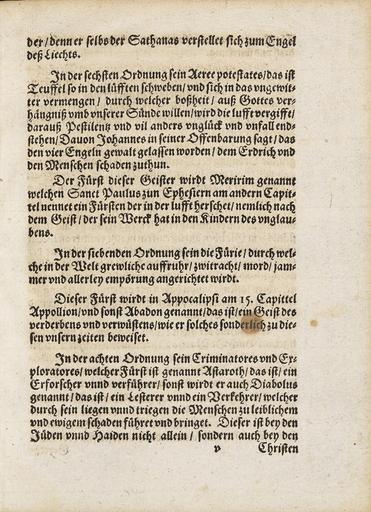 der/ denn er selbs der Sathanas verstellet sich zum Engel
deß Liechts.
In der sechsten Ordnung sein Aeree potestates/ das ist
Teuffel so in den lüfften schweben/ vnd sich in das vngewit-
ter vermengen/ durch welcher boßheit/ auß Gottes ver-
hängniß vmb vnserer Sünde willen/ wird die lufft vergifft/
darauß Pestilentz vnd vil anders vnglück vnd vnfall end-
stehen/ Dauon Johannes in seiner Offenbarung sagt/ das
den vier Engeln gewalt gelassen worden/ dem Erdrich vnd
den Menschen schaden zuthun.
Der Fürst dieser Geister wirdt Meririm genannt
welchen Sanct Paulus zun Ephesiern am andern Capit-
tel nennet ein Fürsten der in der lufft herschet/ nemlich nach
dem Geist/ der sein Werck hat in den Kindern des vnglau-
bens.
In der siebenden Ordnung sein die Fürie/ durch wel-
che in der Welt grewliche auffruhr/ zwitracht/ mord/ jam-
mer vnd allerley empörung angerichtet wirdt.
Dieser Fürst wirdt in Appocalipsi am 15. Capittel
Appollion/ vnd sonst Abadon genannt/ das ist/ ein Geist des
verderbens vnd verwüstens/ wie er solches sonderlich zu die-
sen vnsern zeiten beweiset.
In der achten Ordnung sein Criminatores vnd Ex-
ploratores/ welcher Fürst ist genannt Astaroth/ das ist/ ein
Erforscher vnnd verführer/ sonst wirdt er auch Diabolus
genannt/ das ist/ ein Lesterer vnnd ein Verkehrer/ welcher
durch sein liegen vnnd triegen die Menschen zu leiblichem
vnd ewigem schaden führet vnd bringet. Dieser ist bey den
Jüden vnnd Haiden nicht allein/ sondern auch bey den
v Christen